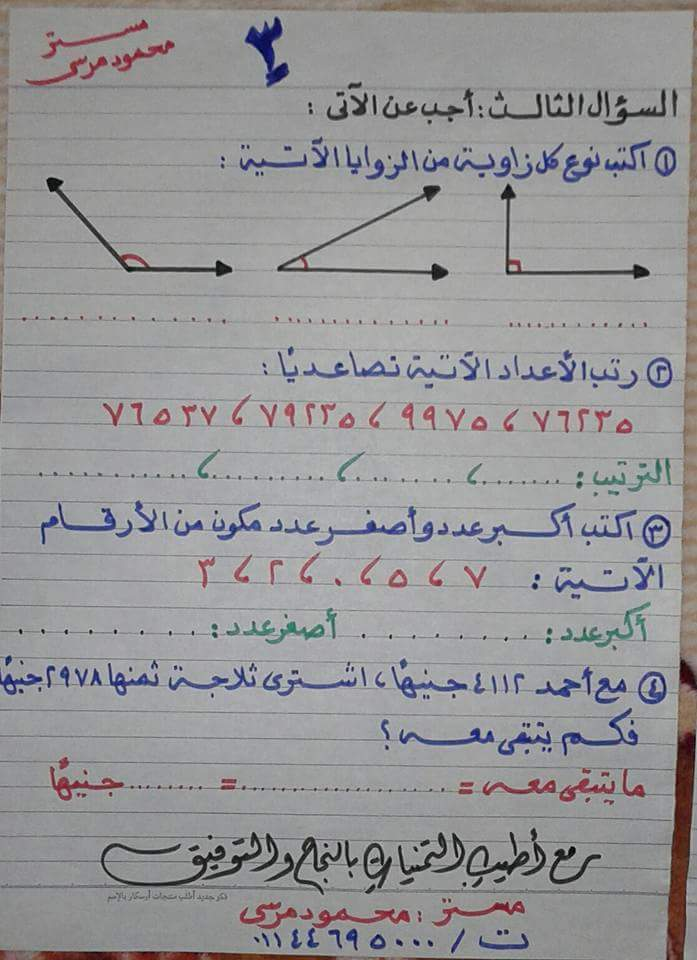 مستر
محمود مرسى
٣
السؤال الثالث : أجب عن الآتى :
① اكتب نوع كل زاوية من الزوايا الآتية :
② رتب الأعداد الآتية تصاعديًا :
٧٦٢٣٥ ، ٩٩٧٥ ، ٧٩٢٣٥ ، ٧٦٥٣٧
الترتيب : ........ ، ........ ، ........ ، ........
③ اكتب أكبر عدد وأصغر عدد مكون من الأرقام
الآتية : ٧ ، ٥ ، ٠ ، ٢ ، ٣
أكبر عدد : ......... أصغر عدد : .........
④ مع أحمد ٤١١٢ جنيهًا ، اشترى ثلاجة ثمنها ٢٩٧٨ جنيهًا
فكم يتبقى معه ؟
ما يتبقى معه = .................... = ........ جنيهًا
مع أطيب التمنيات بالنجاح والتوفيق
فكر جديد أطلب منتجات أوسكار بالإسم
مستر : محمود مرسى
ت / ٠١١٤٤٦٩٥٠٠٠